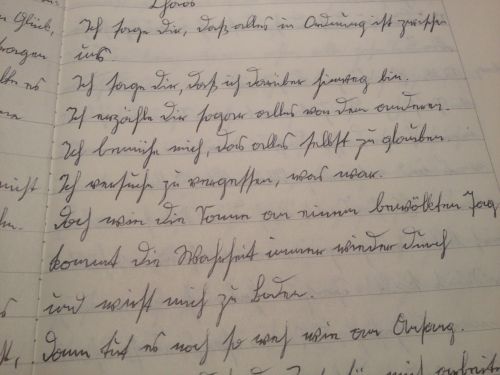 Glück,
Ich sage dir, daß alles in Ordnung ist zwischen
uns.
Ich sage dir, daß ich darüber hinweg bin.
Ich erzähle dir sogar alles von dem anderen.
Ich bemühe mich, das alles selbst zu glauben.
nicht Ich versuche zu vergessen, was war.
Doch wie die Sonne an einem bewölkten Tag
kommt die Wahrheit immer wieder durch
und wirft mich zu Boden.
dann tut es noch so weh wie am Anfang.
mich